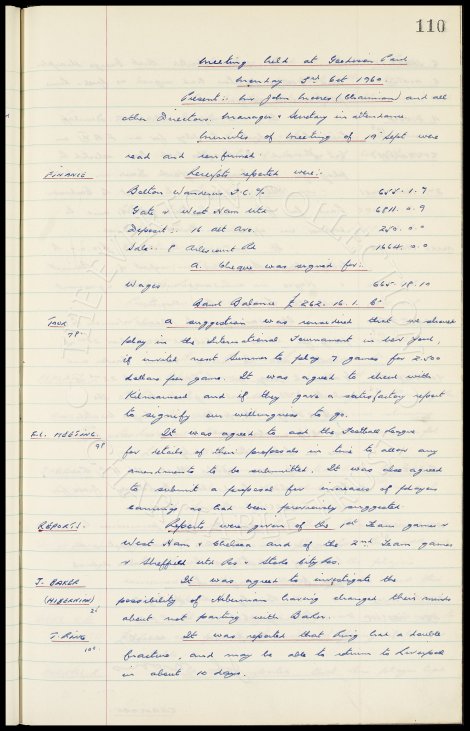 110
Meeting held at Goodison Park
Monday 3rd Oct 1960.
Present:- Mr John Moores (Chairman) and all
other Directors. Manager & Secretary in attendance
Minutes of Meeting of 19 Sept were
read and confirmed.
FINANCE Receipts reported were:-
Bolton Wanderers F.C. % 655.1.7
Gate v West Ham Utd 6811.0.9
Deposit:- 16 Ave. 250.0.0
Sale: 9 Rd 1664.0.0
A. Cheque was signed for:-
Wages 665.18.10
Bank Balance £262.16.1.
TOUR A suggestion was considered that we should
play in the International Tournament in New York,
if invited next Summer to play 7 games for 2.500
dollars per game. It was agreed to check with
Kilmarnock and if they gave a satisfactory report
to signify our willingness to go.
F.L. MEETING. It was agreed to ask the Football League
for details of their proposals in time to allow any
amendments to be submitted. It was also agreed
to submit a proposal for increases of players
earnings as had been previously suggested.
REPORTS. Reports were given of the 1st Team games v
West Ham & Chelsea and of the 2nd Team games
v Sheffield Utd Res & Stoke City Res.
J. BAKER It was agreed to investigate the
(HIBERNIAN) possibility of Hibernian having changed their minds
about not parting with Baker.
T. RING It was reported that Ring had a double
fracture, and may be able to return to Liverpool
in about 10 days.